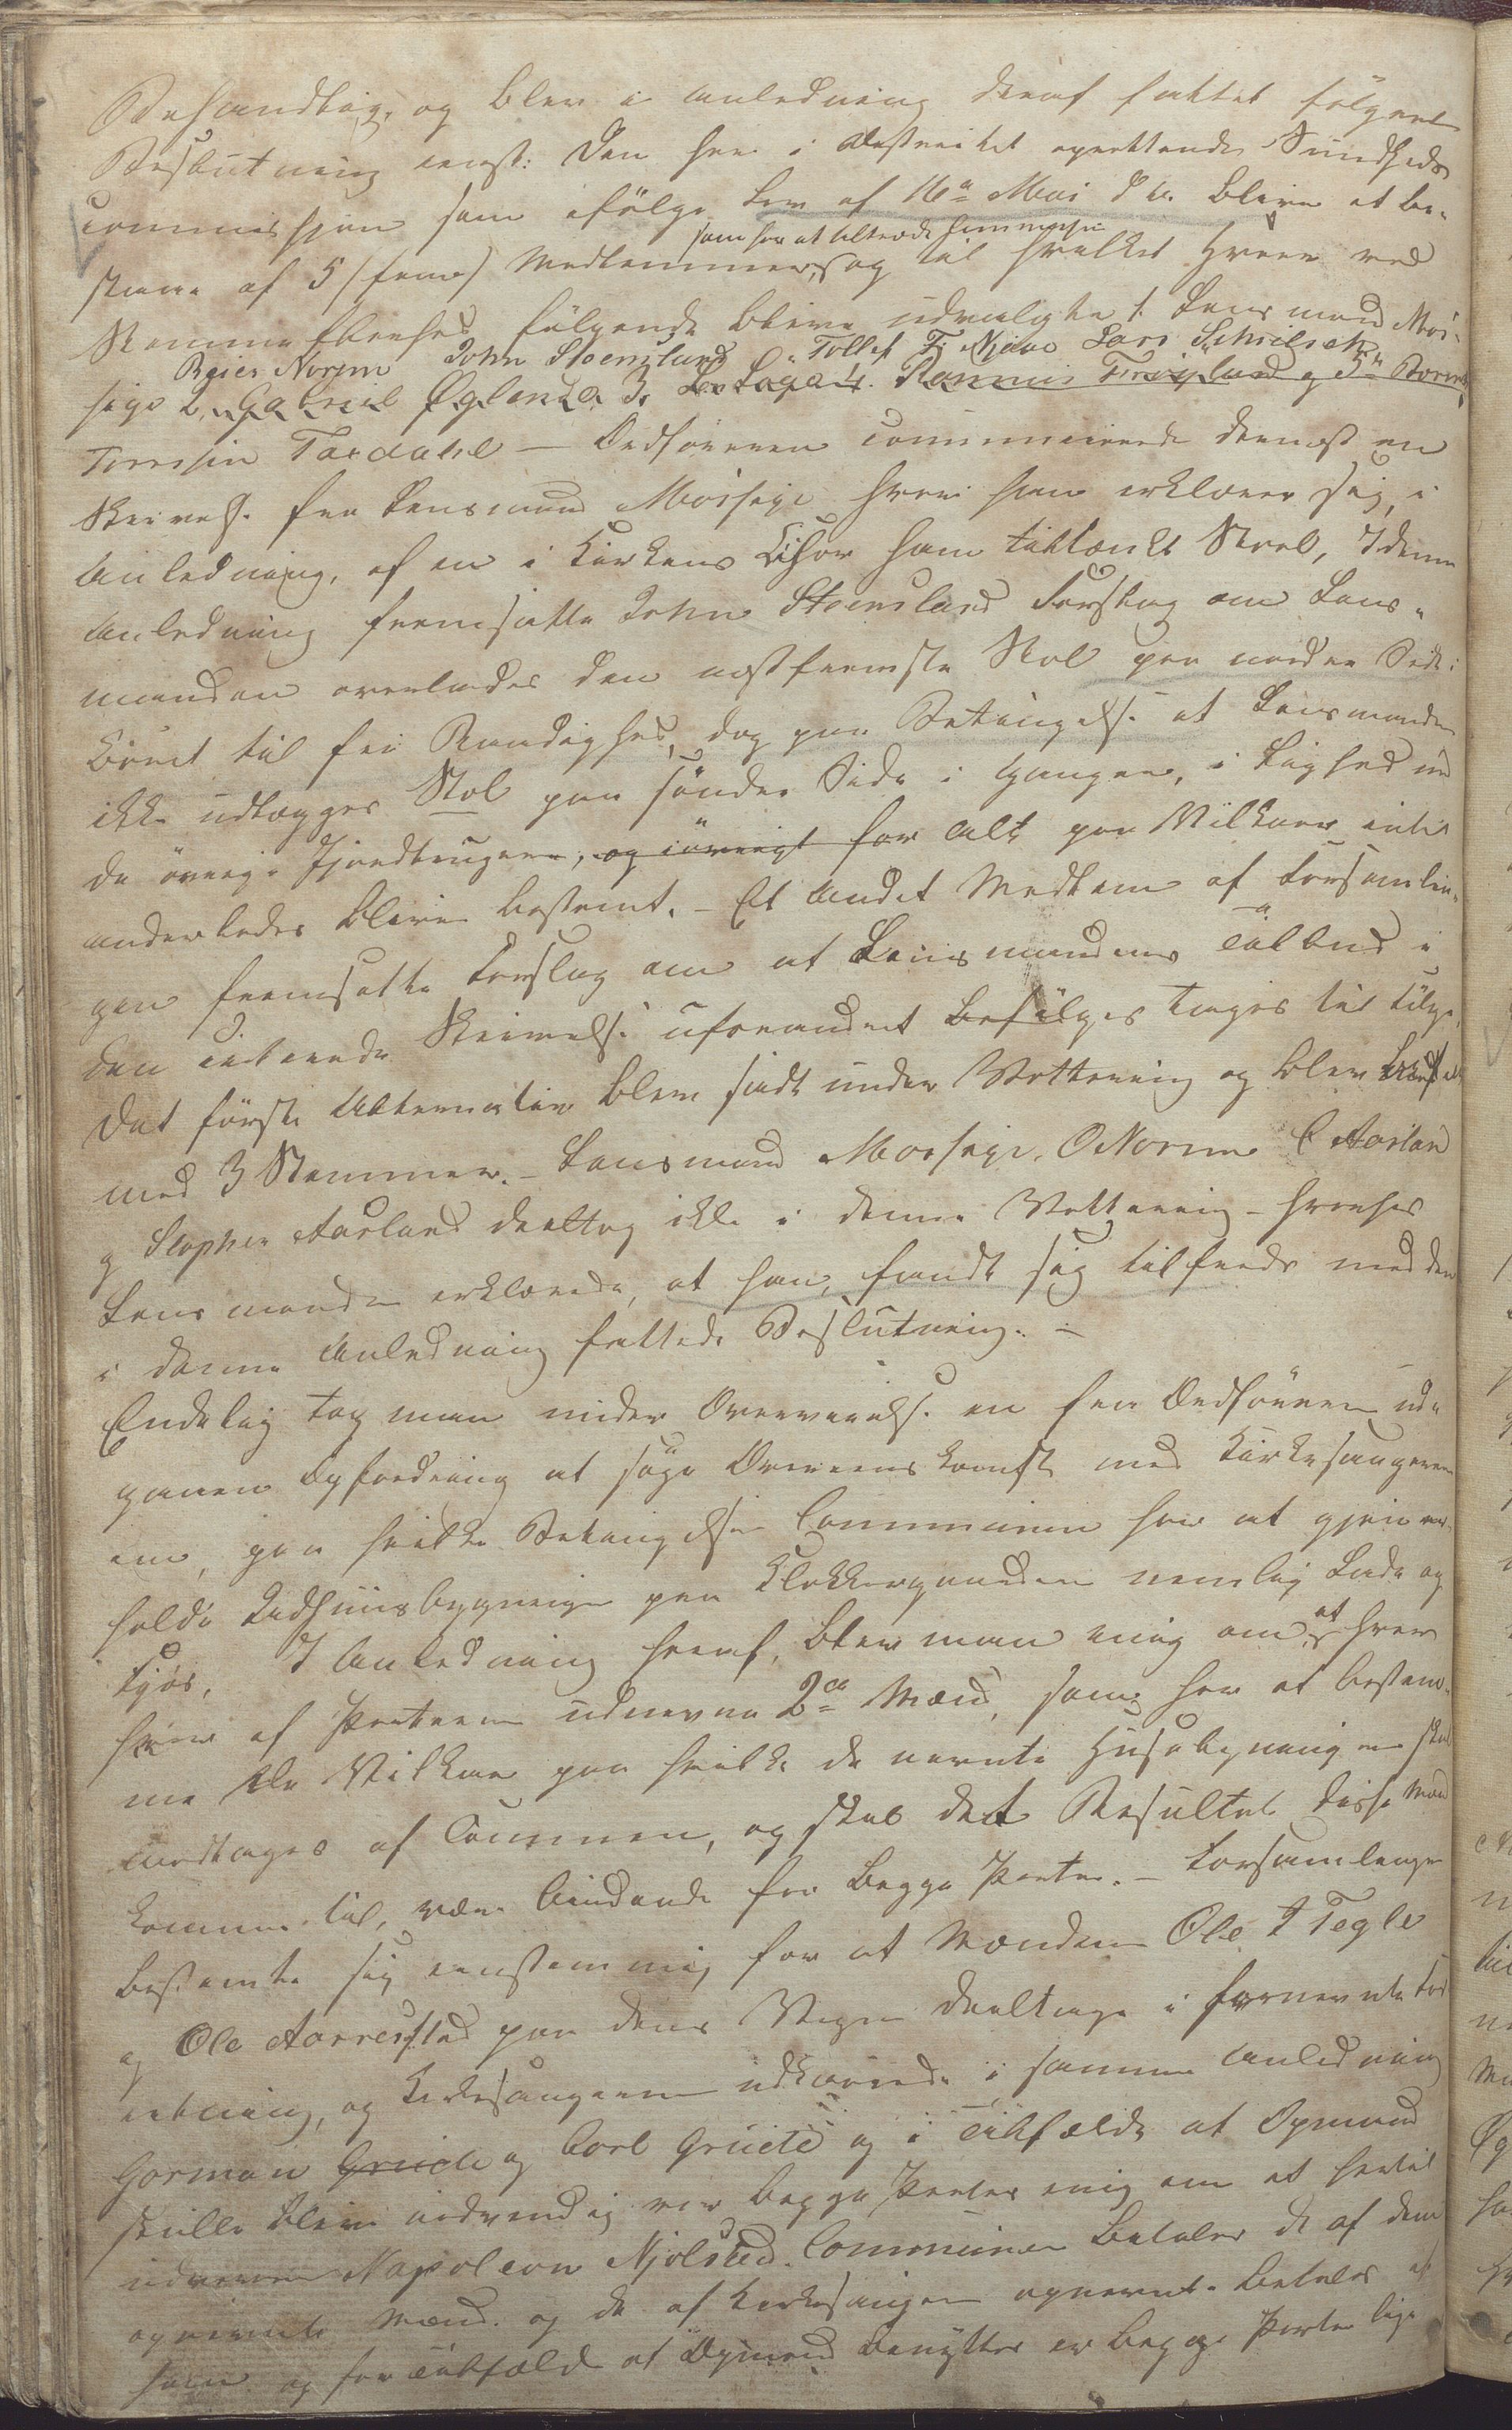 Behandling, og blev i anledning deraf fattet følgende
Beslutning enst: Den her i Districtet oprettende Sundheds
commisjon som ifølge Lov af 16de Mai d A. bliver at be-
som har at tiltræde
staae af 5 /fem/ Medlemmer, og til hvilket Hverv ved
Stemmefleerhed følgende bleve udvalgte 1. Lensmand Moi-
Reier Norem John Stoensland Tollef Njaae Lars
sige 2, Gabriel Øglend 3. 4. Rasmus Frøiland og 5te
Taxdahl – Ordføreren communicerede dernæst en
Skrivelse fra Lensmand Moisige hvori han erklærer sig, i
Anledning, af en i Kirkens Chor ham tiltænkt Stoel, I denne
Anledning fremsatte John Stoensland Forslag om Lens-
manden overlades den næstfremste Stol paa nordre Side i
Choret til fri Raadighed, dog paa Betingelse at Lensmanden
ikke udlægger Stol paa søndre Side i Gangen, i Lighed med
de øvrige Jordbrugere, og iøvrigt for alt paa Vilkaar indtil
anderledes bliver bestemt. – Et andet Medlem af Forsamlin-
gen fremsatte Forslag om at Lensmandens Tilbud i
den citerede Skrivelse uforandret befølges tages til følge,
Det første Alternativ blev sadt under Vottering og blev
med 3 Stemmer. – Lensmand Moisige, O Norem C Aarsland
og Stephen Aarsland deeltog ikke i denne Vottering – hvorhos
Lensmanden erklærede, at han, fandt sig tilfreds med den
i denne Anledning fattede Beslutning. –
Endelig tog man under Overveielse en fra Ordføreren ud-
gaaen Opfordring at søge Overeenskomst med Kirkesangeren
om, paa hvilke Betingelser Communen har at gjen
holde Udhuusbygninge paa Klokkergaarden nemlig Lade og
Fjøs. I Anledning heraf, blev man enig om, at hver
især af Parterne udnevne 2de Mænd, som har at bestem-
me de Vilkaar paa hvilke de nevnte Huusebygninger skal
modtages af Communen, og skal det Resultat disse Mænd
kommer til, være bindende for begge Parter. – Forsamlingen
bestemte sig eenstemmig for at Mændene Ole T Tegle
og Ole Aarrestad paa dens Vegne deeltage i fornevnte For
retning, og Kirkesangeren udkaarede i samme Anledning
Gorman Grude og Carl Grude og i Tilfælde at Opmand
skulle blive nødvendig var begge Parter enig om at hertil
udnevne Napoleon Njølstad. Communen betaler de af dem
opnevnte Mænd og de af Kirkesangeren opnevnte betales af
ham og for Tilfælde at Opmand benyttes er begge Parter lige